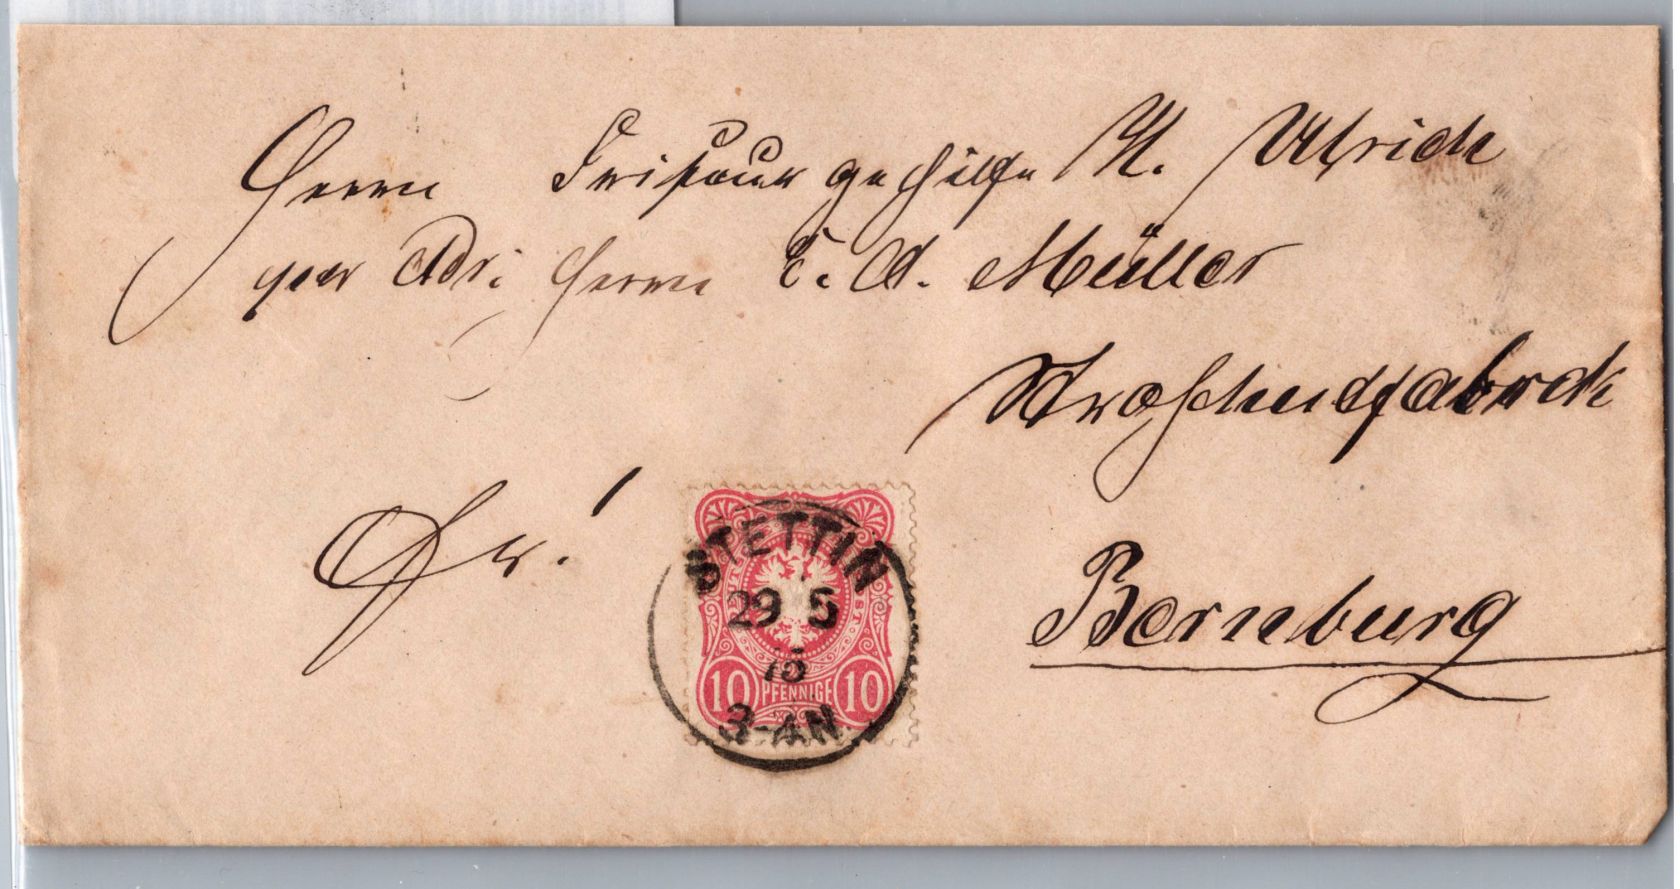 Herrn Friseurgehilfe A. Ulrich
per Adr. Herrn C. A. Müller
Strohhutfabrik
Fr.
Bernburg
STETTIN
29 5
75
3-4N
10 PFENNIGE 10